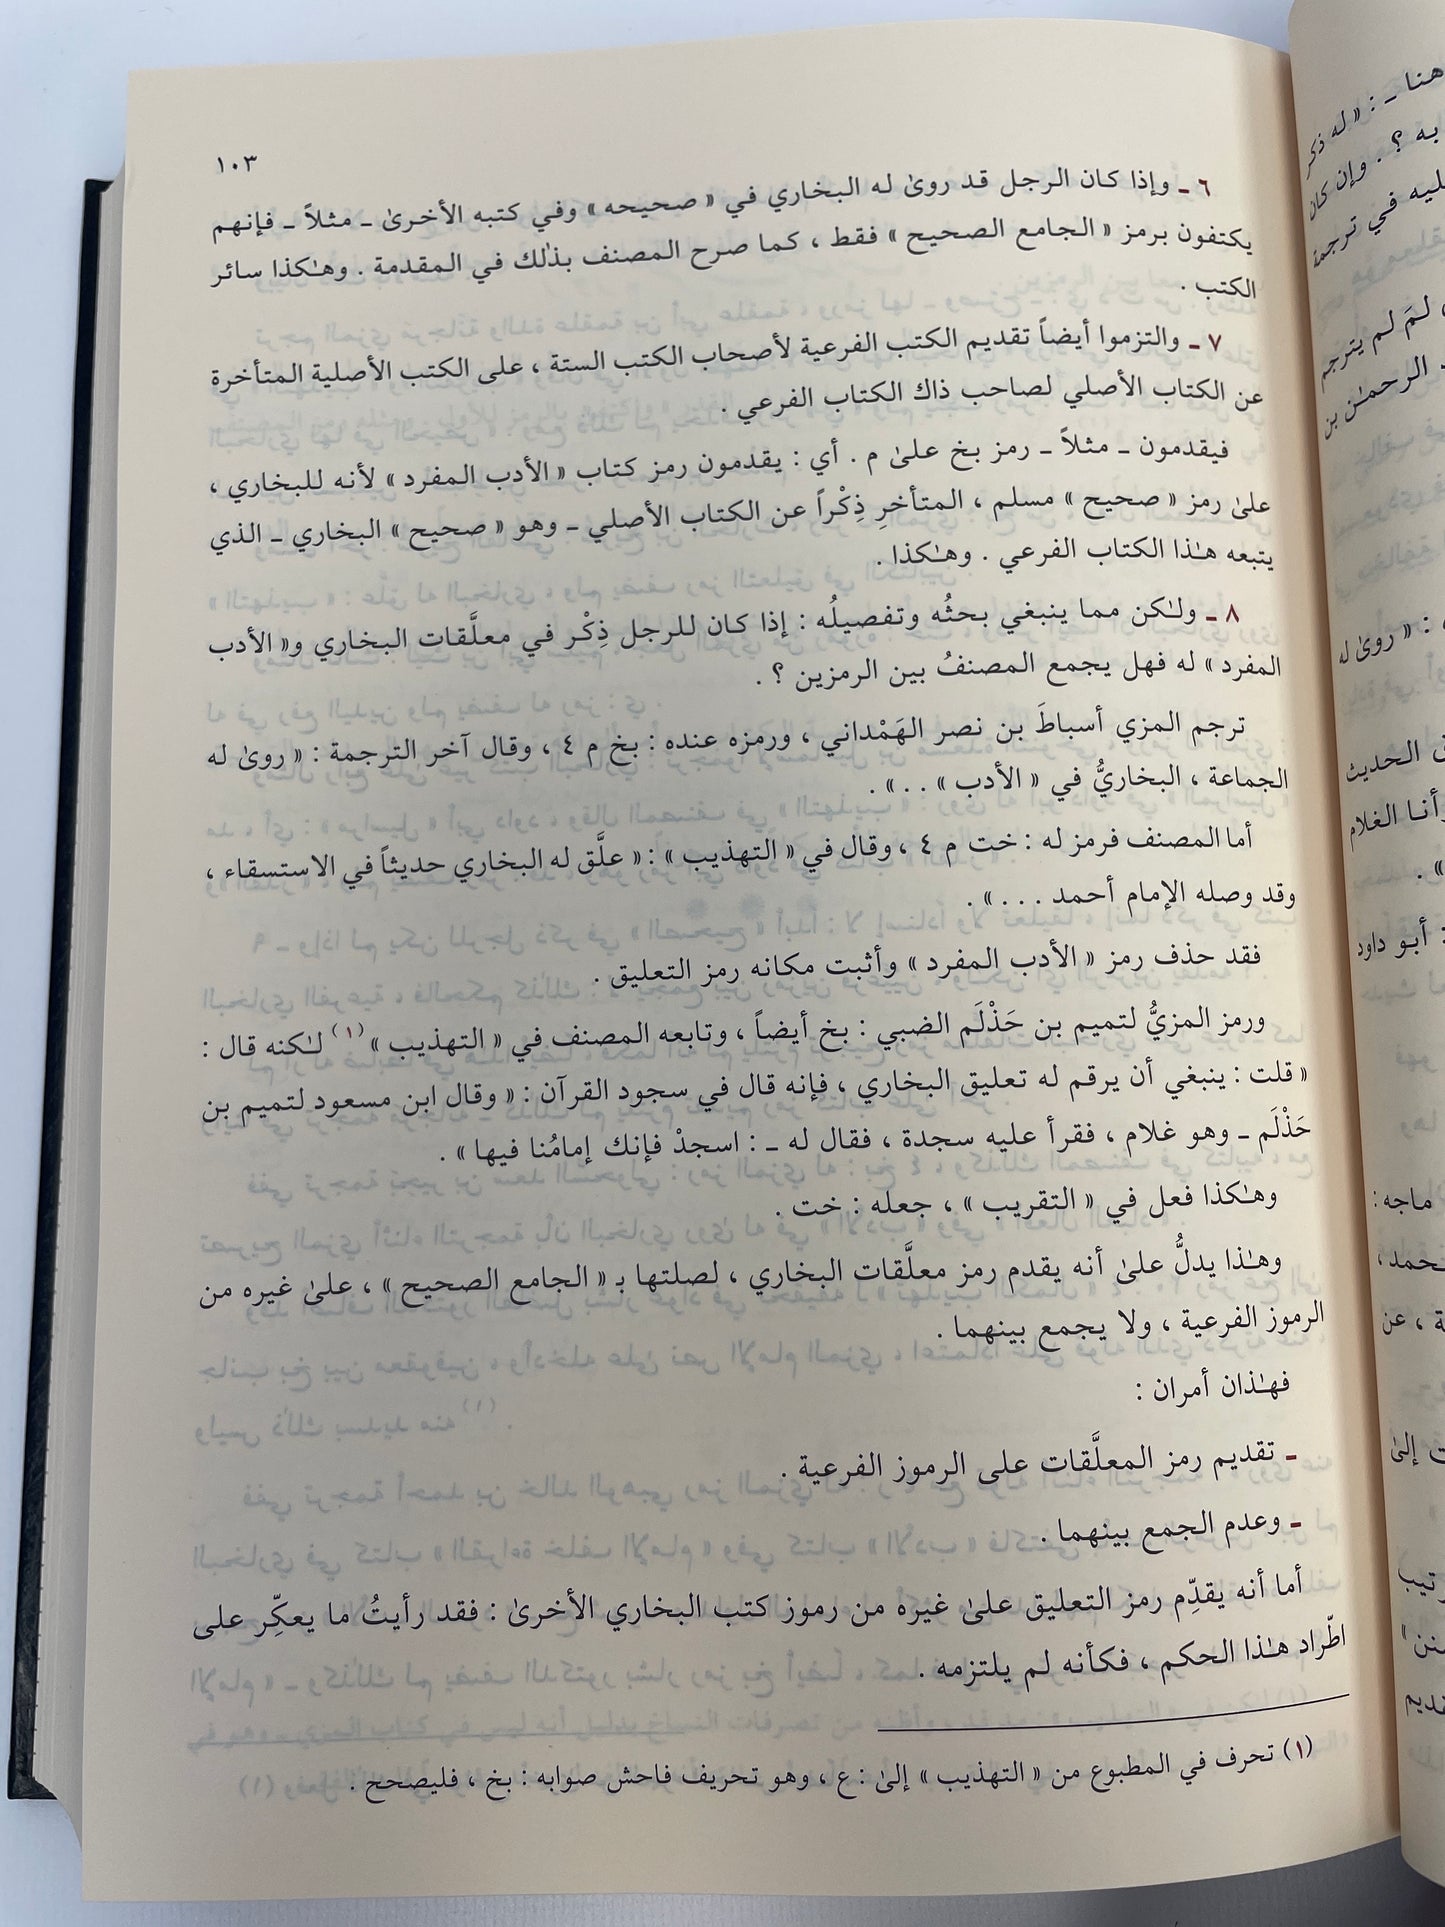 ١٠٣
٦ ـ وإذا كان الرجل قد روىٰ له البخاري في « صحيحه » وفي كتبه الأخرىٰ ـ مثلاً ـ فإنهم
يكتفون برمز « الجامع الصحيح » فقط ، كما صرح المصنف بذٰلك في المقدمة . وهـٰكذا سائر
الكتب .
٧ ـ والتزموا أيضاً تقديم الكتب الفرعية لأصحاب الكتب الستة ، على الكتب الأصلية المتأخرة
عن الكتاب الأصلي لصاحب ذاك الكتاب الفرعي .
فيقدمون ـ مثلاً ـ رمز بخ علىٰ م . أي : يقدمون رمز كتاب « الأدب المفرد » لأنه للبخاري ،
علىٰ رمز « صحيح » مسلم ، المتأخرِ ذِكْراً عن الكتاب الأصلي ـ وهو « صحيح » البخاري ـ الذي
يتبعه هـٰذا الكتاب الفرعي . وهـٰكذا .
٨ ـ ولـٰكن مما ينبغي بحثُه وتفصيلُه : إذا كان للرجل ذِكْر في معلَّقات البخاري و« الأدب
المفرد » له فهل يجمع المصنفُ بين الرمزين ؟ .
ترجم المزي أسباطَ بن نصر الهَمْداني ، ورمزه عنده : بخ م ٤ ، وقال آخر الترجمة : « روىٰ له
الجماعة ، البخاريُّ في « الأدب » . . » .
أما المصنف فرمز له : خت م ٤ ، وقال في « التهذيب » : « علَّق له البخاري حديثاً في الاستسقاء ،
وقد وصله الإمام أحمد . . . » .
فقد حذف رمز « الأدب المفرد » وأثبت مكانه رمز التعليق .
ورمز المزيُّ لتميم بن حَذْلَم الضبي : بخ أيضاً ، وتابعه المصنف في « التهذيب »(١) لـٰكنه قال :
« قلت : ينبغي أن يرقم له تعليق البخاري ، فإنه قال في سجود القرآن : « وقال ابن مسعود لتميم بن
حَذْلَم ـ وهو غلام ، فقرأ عليه سجدة ، فقال له ـ : اسجدْ فإنك إمامُنا فيها » .
وهـٰكذا فعل في « التقريب » ، جعله : خت .
وهـٰذا يدلُّ علىٰ أنه يقدم رمز معلَّقات البخاري ، لصلتها بـ « الجامع الصحيح » ، علىٰ غيره من
الرموز الفرعية ، ولا يجمع بينهما .
فهـٰذان أمران :
ـ تقديم رمز المعلَّقات على الرموز الفرعية .
ـ وعدم الجمع بينهما .
أما أنه يقدِّم رمز التعليق علىٰ غيره من رموز كتب البخاري الأخرىٰ : فقد رأيتُ ما يعكِّر على
اطّراد هـٰذا الحكم ، فكأنه لم يلتزمه .
(١) تحرف في المطبوع من « التهذيب » إلىٰ : ع ، وهو تحريف فاحش صوابه : بخ ، فليصحح .
هنا ـ : « له ذكر
به ؟ . وإن كان
عليه في ترجمة
، لمَ لم يترجم
الرحمـٰن بن
: « روىٰ له
الحديث
أنا الغلام
» .
: أبو داود
ماجه :
، عن
إلىٰ